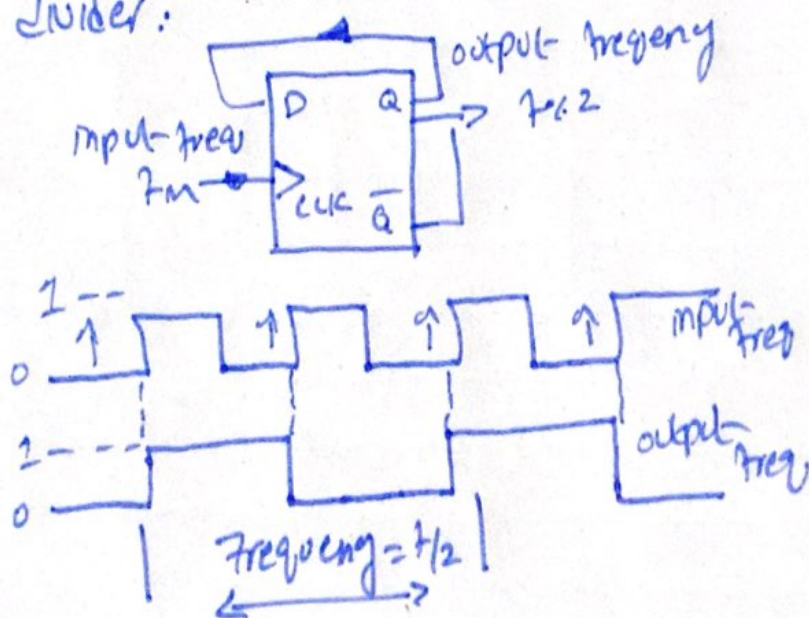 divider:
output frequeny
D Q
f÷2
input freq
fin
CLK Q̅
1
0
input freq
1
output freq
0
Frequeny = f/2